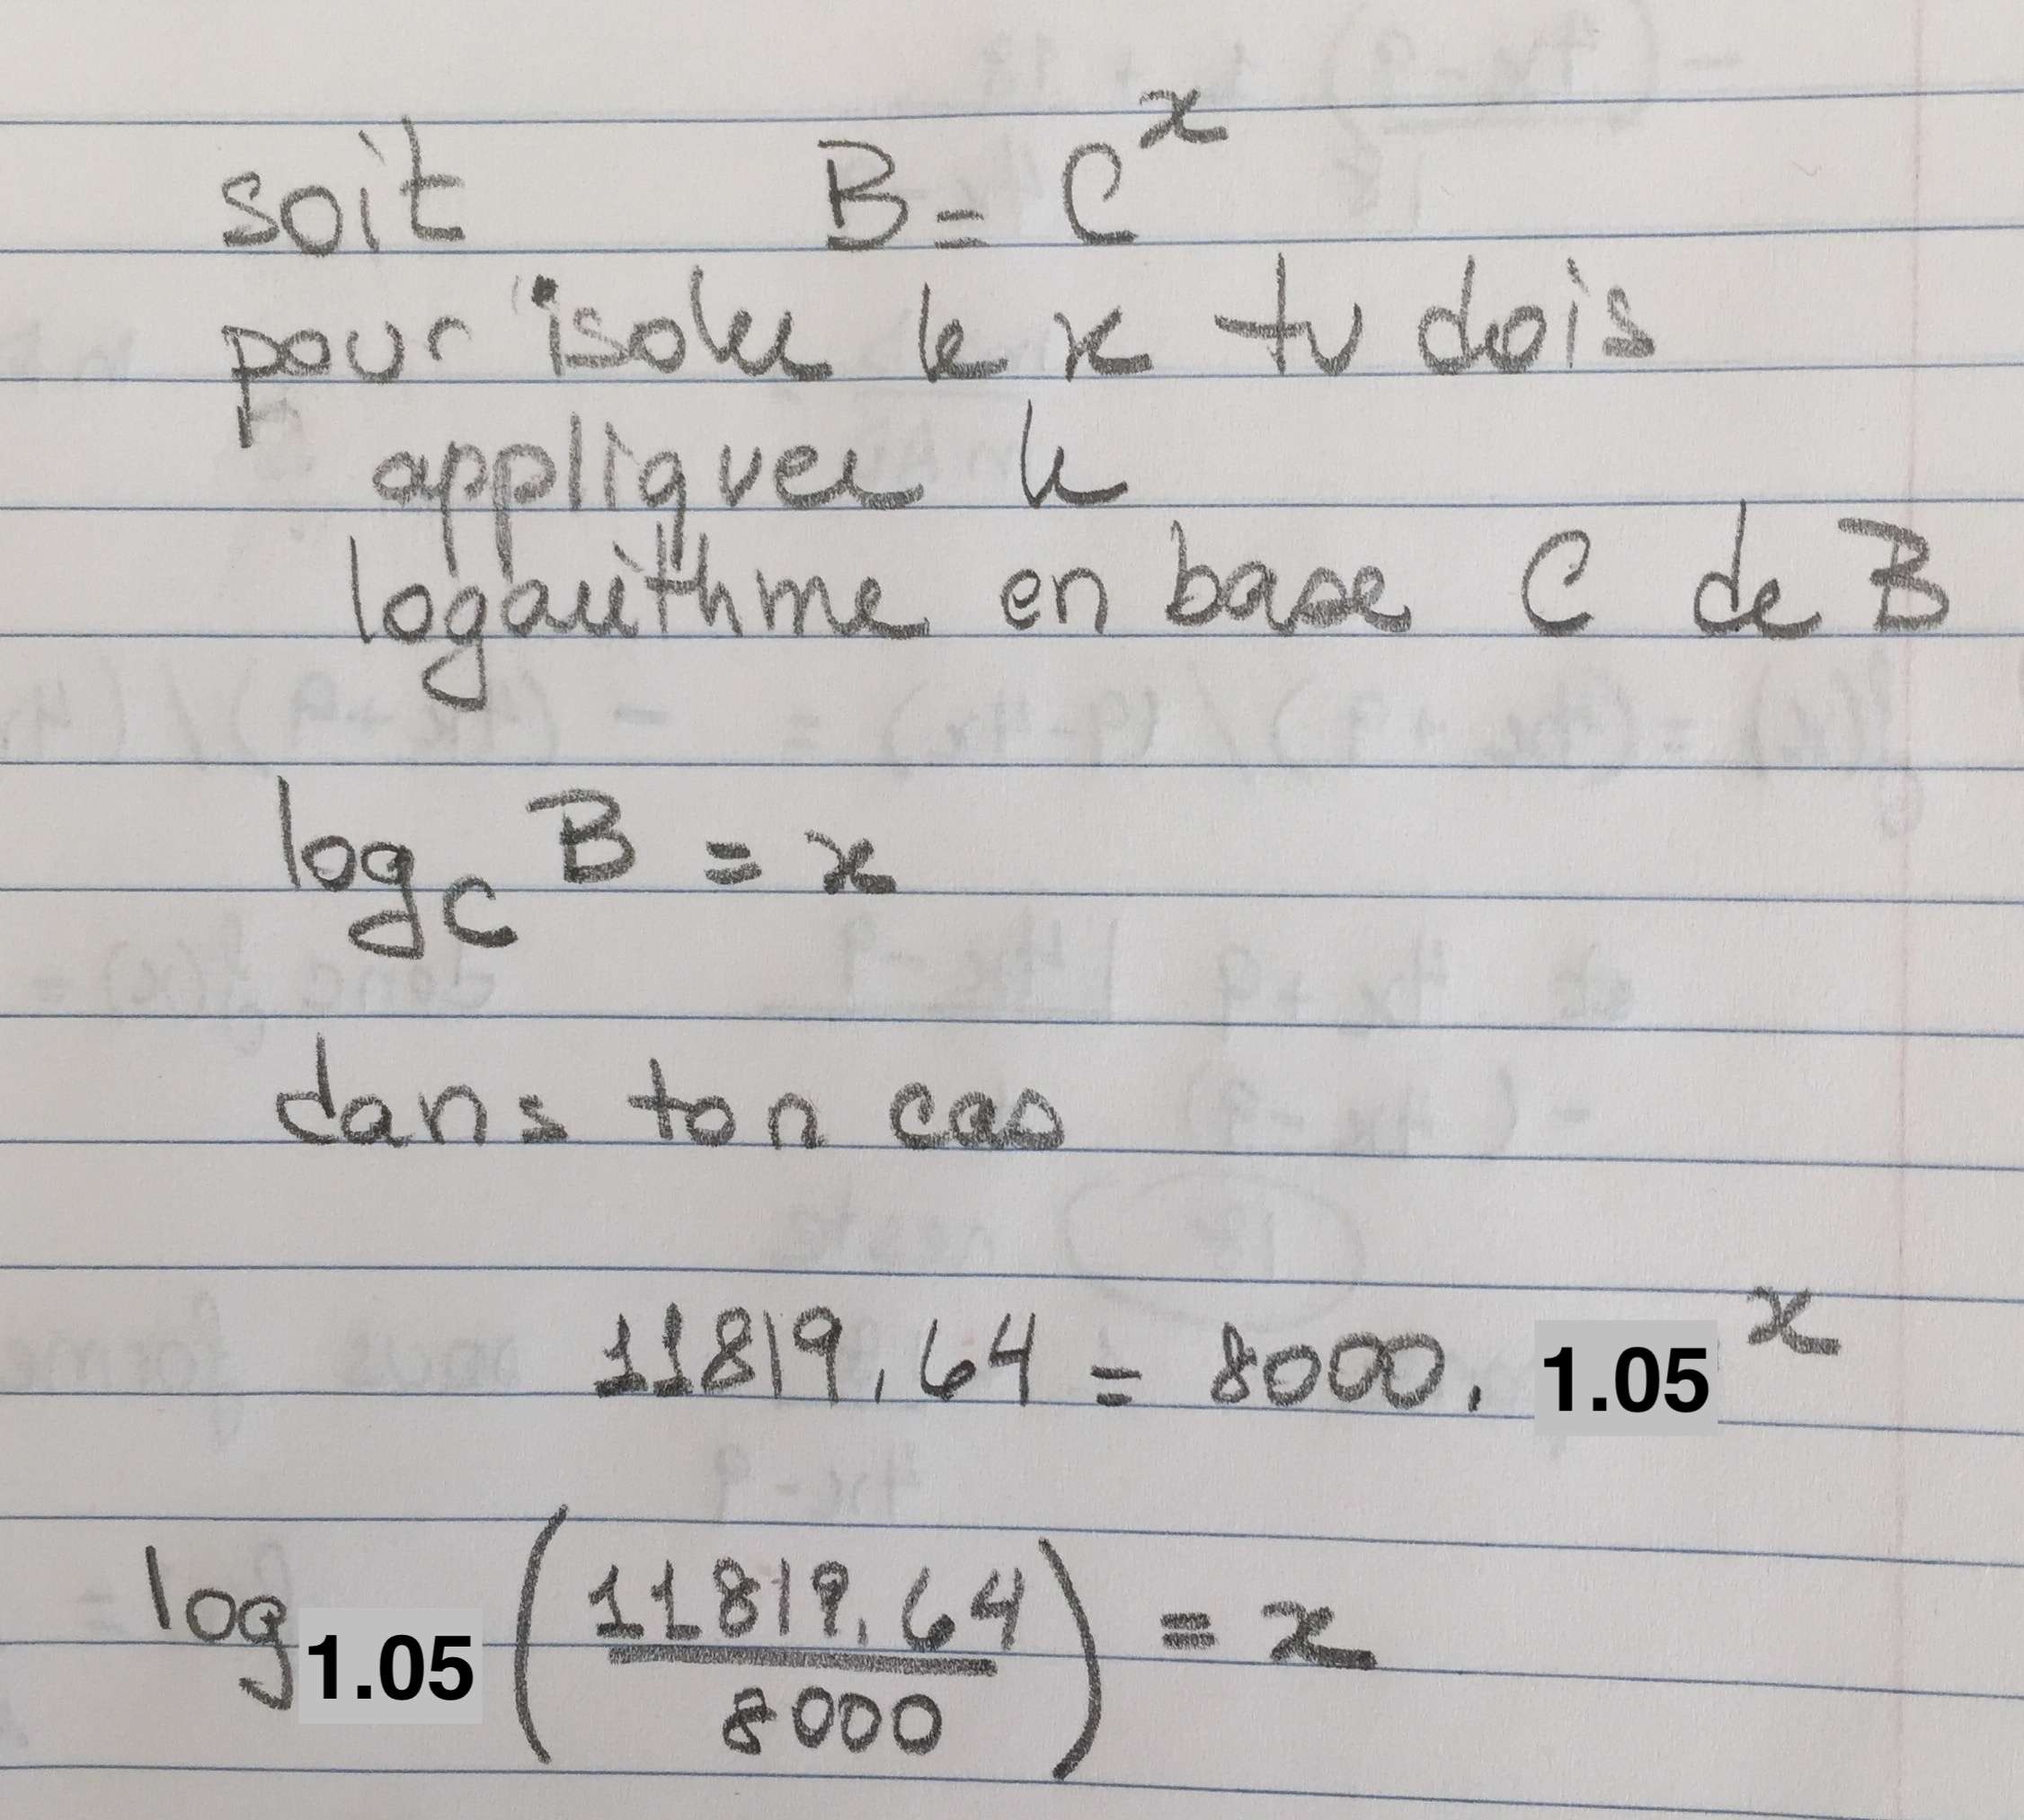 soit B = C^x
pour isoler le x tu dois
appliquer le
logarithme en base C de B
log_C B = x
dans ton cas
11819,64 = 8000 . 1.05^x
log_1.05 (11819,64 / 8000) = x